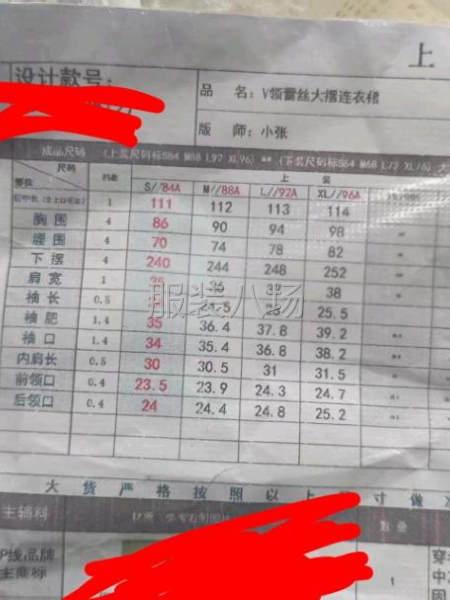 上
设计款号:
品 名: V领蕾丝大摆连衣裙
版 师: 小张
成品尺码 (上装尺码标S84 M88 L92 XL96) **
尺码
上 装
S//84A M//88A L//92A XL//96A
1 111 112 113 114
胸围 4 86 90 94 98
腰围 4 70 74 78 82
下摆 4 240 244 248 252
肩宽 1 36 38
袖长 0.5 25.5
袖肥 1.4 35 36.4 37.8 39.2
袖口 1.4 34 35.4 36.8 38.2
内肩长 0.5 30 30.5 31 31.5
前领口 0.4 23.5 23.9 24.3 24.7
后领口 0.4 24 24.4 24.8 25.2
服装八场
大 货 严 格 按 照 以 上 寸 做
主辅料 数 量
P线品牌 1
主商标